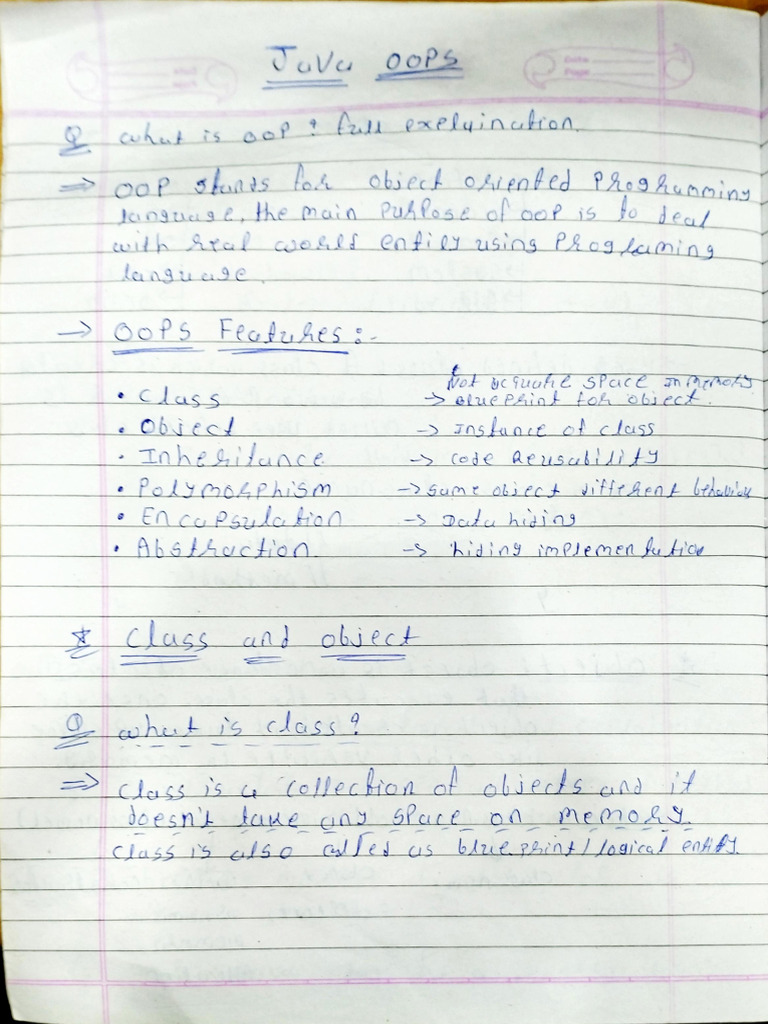 Java OOPS
Q what is OOP? full explaination.
⇒ OOP stands for object oriented Programming
language, the main purpose of OOP is to deal
with real world entity using Programing
language.
→ OOPS Features:-
Not acquire space in memory
• Class → blueprint for object.
• Object → Instance of class
• Inheritance → code Reusability
• Polymorphism → same object different behaviour
• Encapsulation → Data hiding
• Abstraction → hiding implementation
★ Class and object
Q what is class?
⇒ Class is a collection of objects and it
doesn't take any space on memory.
class is also called as blueprint/logical entity.